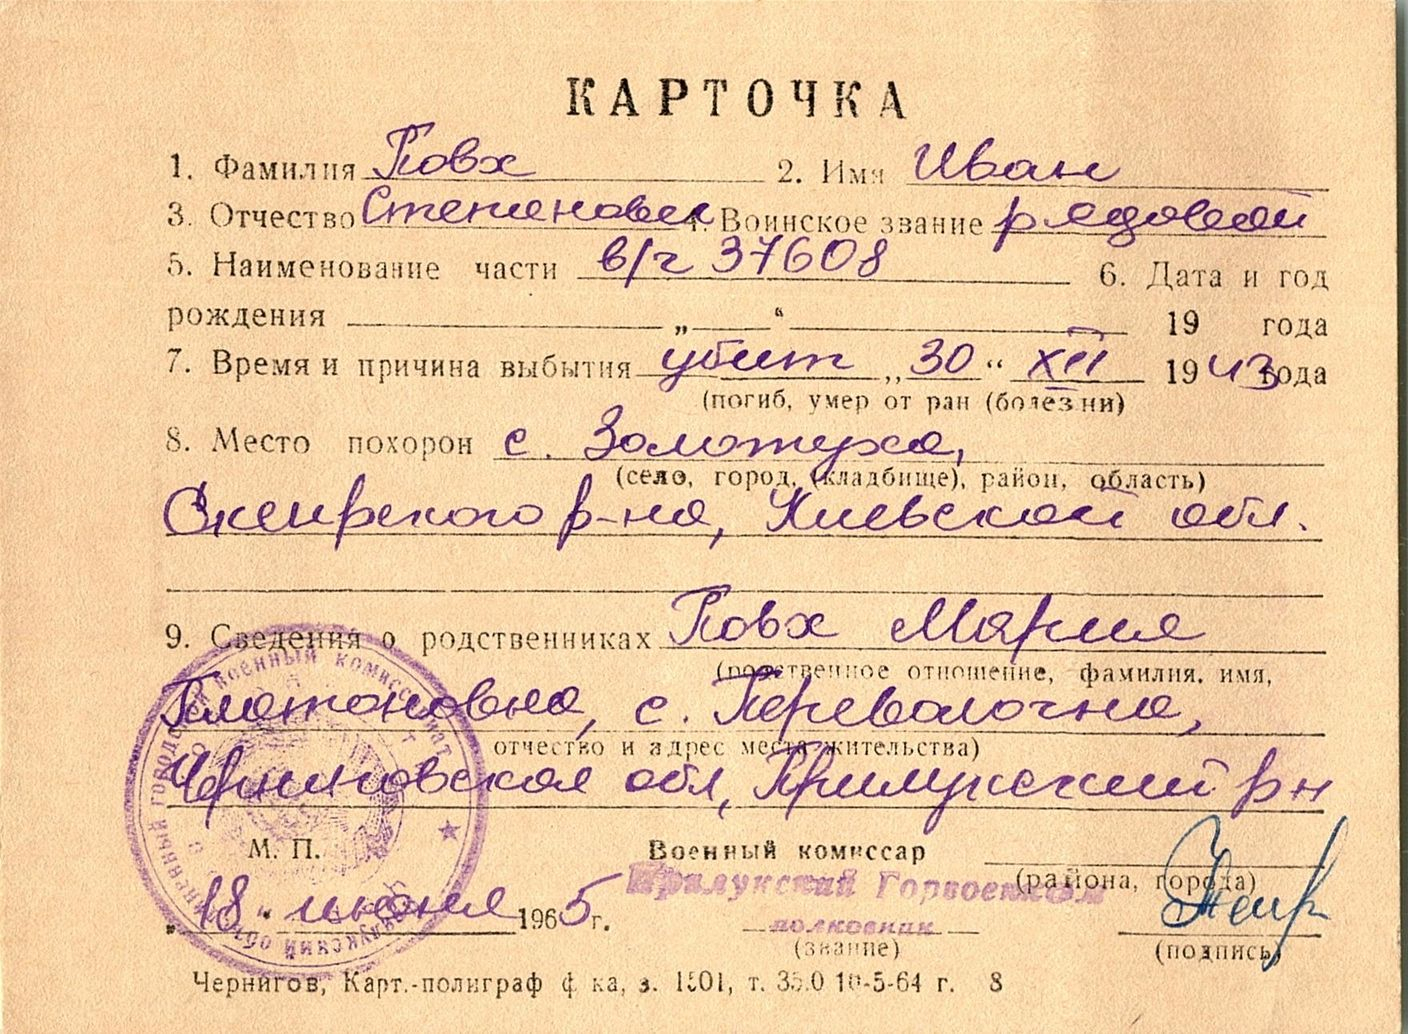 КАРТОЧКА
1. Фамилия Повх 2. Имя Иван
3. Отчество Степанович 4. Воинское звание рядовой
5. Наименование части в/ч 37608 6. Дата и год
рождения „ “ 19 года
7. Время и причина выбытия убит „30“ XII 1943 года
(погиб, умер от ран (болезни)
8. Место похорон с. Золотуха,
(село, город, (кладбище), район, область)
Сквирского р-на, Киевской обл.
9. Сведения о родственниках Повх Мария
(родственное отношение, фамилия, имя,
Платоновна, с. Переволочна,
отчество и адрес места жительства)
Черниговская обл, Прилукский р н
М. П. Военный комиссар
Прилукский Горвоенком
(района, города)
18 июня 1965 г. полковник
(звание) (подпись)
Чернигов, Карт.-полиграф ф ка, з. 1501, т. 10-5-64 г. 8
объединенный городской военный комиссариат